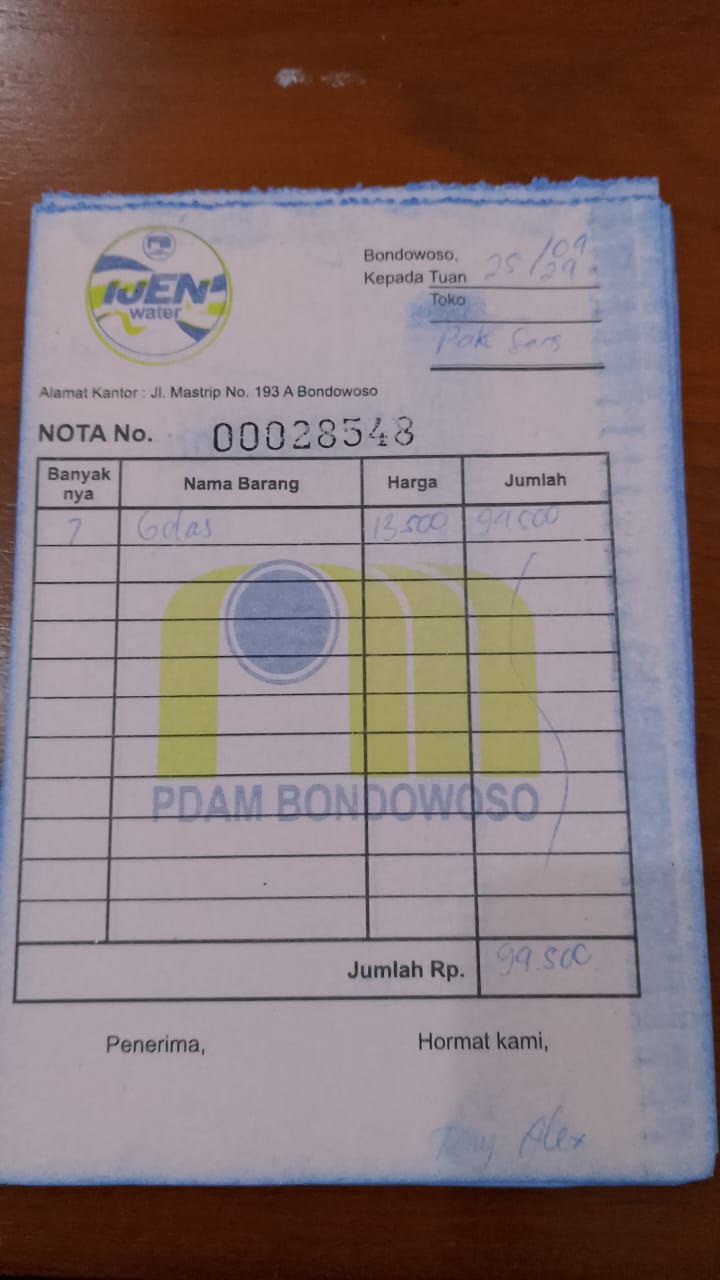 IJEN
water
Bondowoso, 25/09
Kepada Tuan 24
Toko
Pak
Alamat Kantor : Jl. Mastrip No. 193 A Bondowoso
NOTA No. 00028548
Banyak nya Nama Barang Harga Jumlah
7 Gelas 13.500 94.500
PDAM BONDOWOSO
Jumlah Rp. 94.500
Penerima, Hormat kami,
Alex